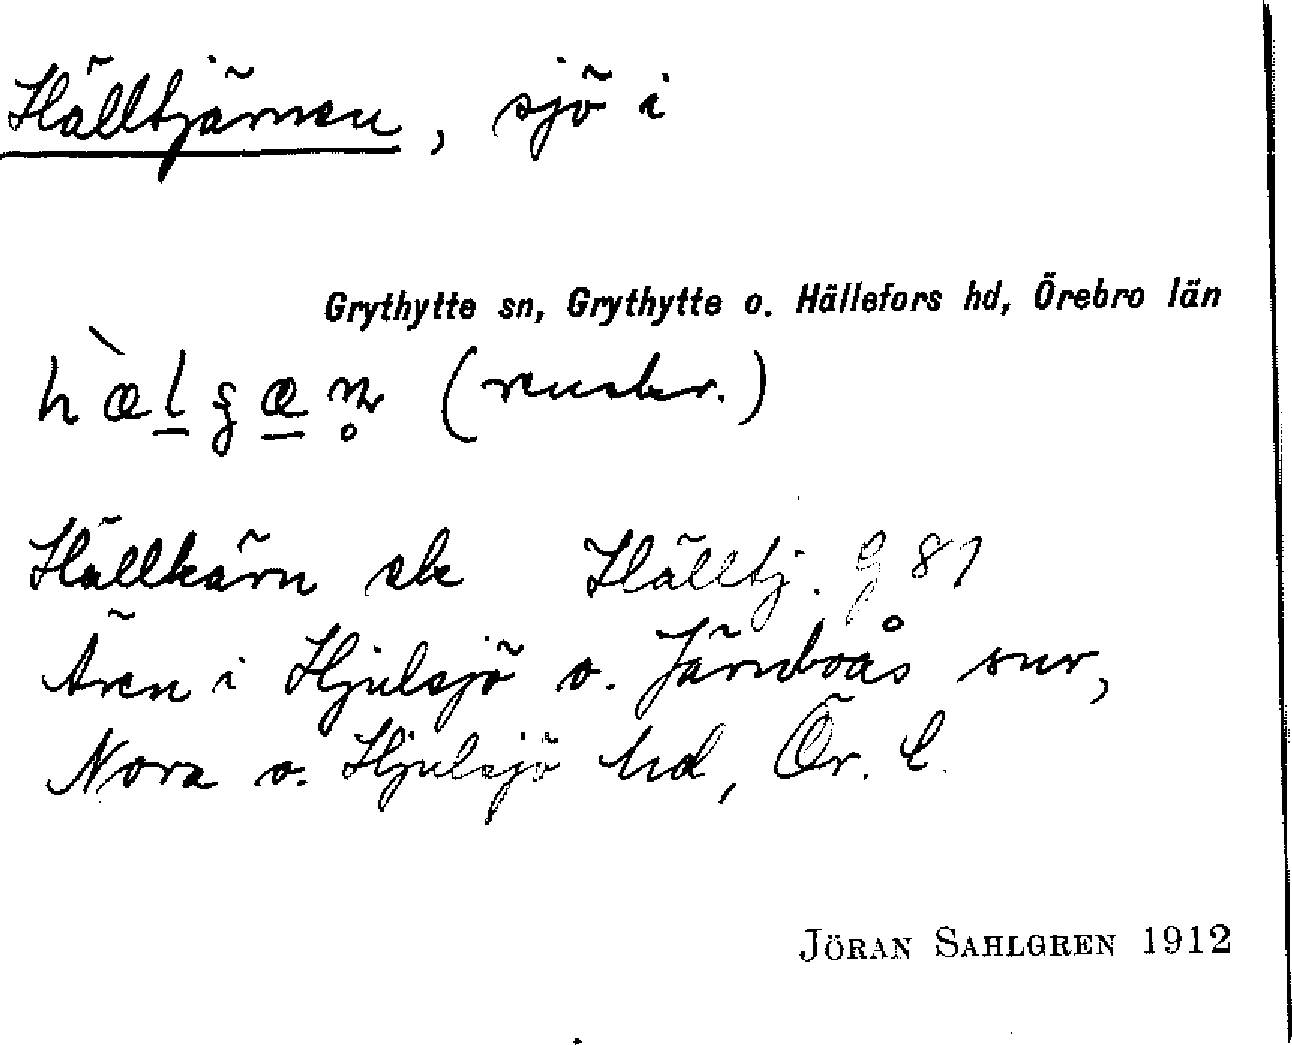 Hälltjärnen, sjö i
Grythytte sn, Grythytte o. Hällefors hd, Örebro län
Hällkärn sk Hälltj. G 81
Även i Hjulsjö o. Järnboås snr,
Nora o. Hjulsjö hd, Ör. l.
JÖRAN SAHLGREN 1912